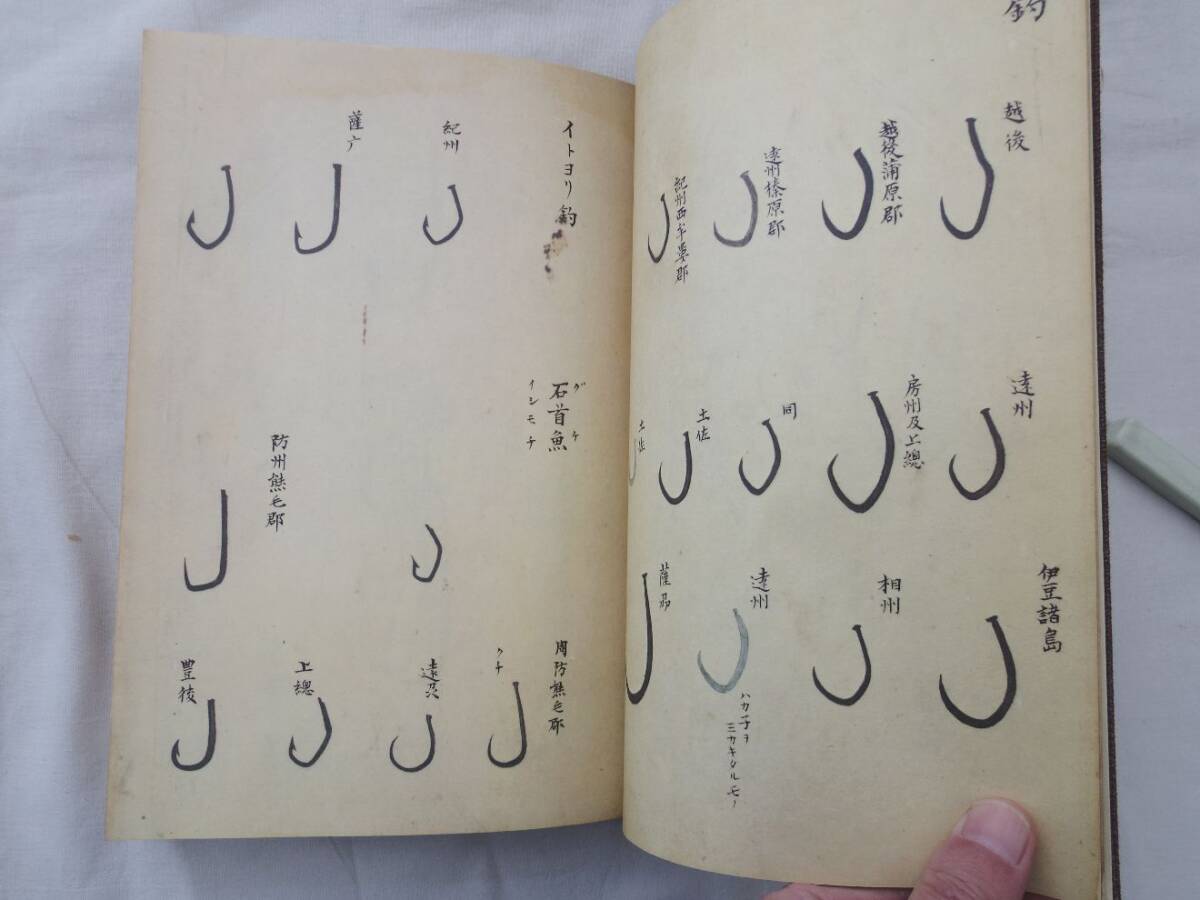 鈎
越後
越後蒲原郡
遠州榛原郡
紀州西牟婁郡
遠州
房州及上總
同
土佐
土佐
伊豆諸島
相州
遠州
ハガ子ヲ
ミガキタルモノ
薩州
イトヨリ鈎
紀州
薩广
グチ
石首魚
イシモチ
防州熊毛郡
周防熊毛郡
クチ
遠州
上總
豊後